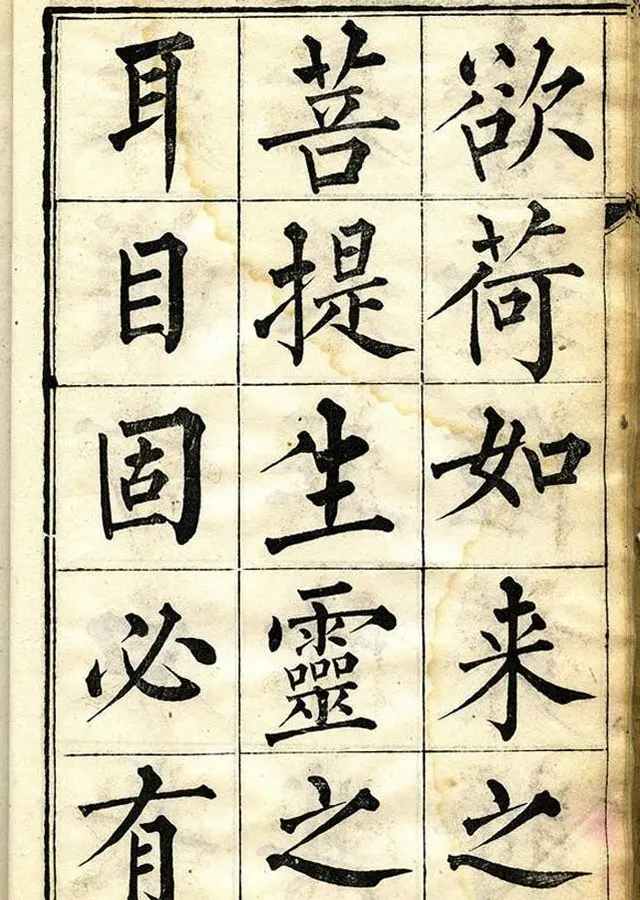 欲荷如来之
菩提生靈之
耳目固必有